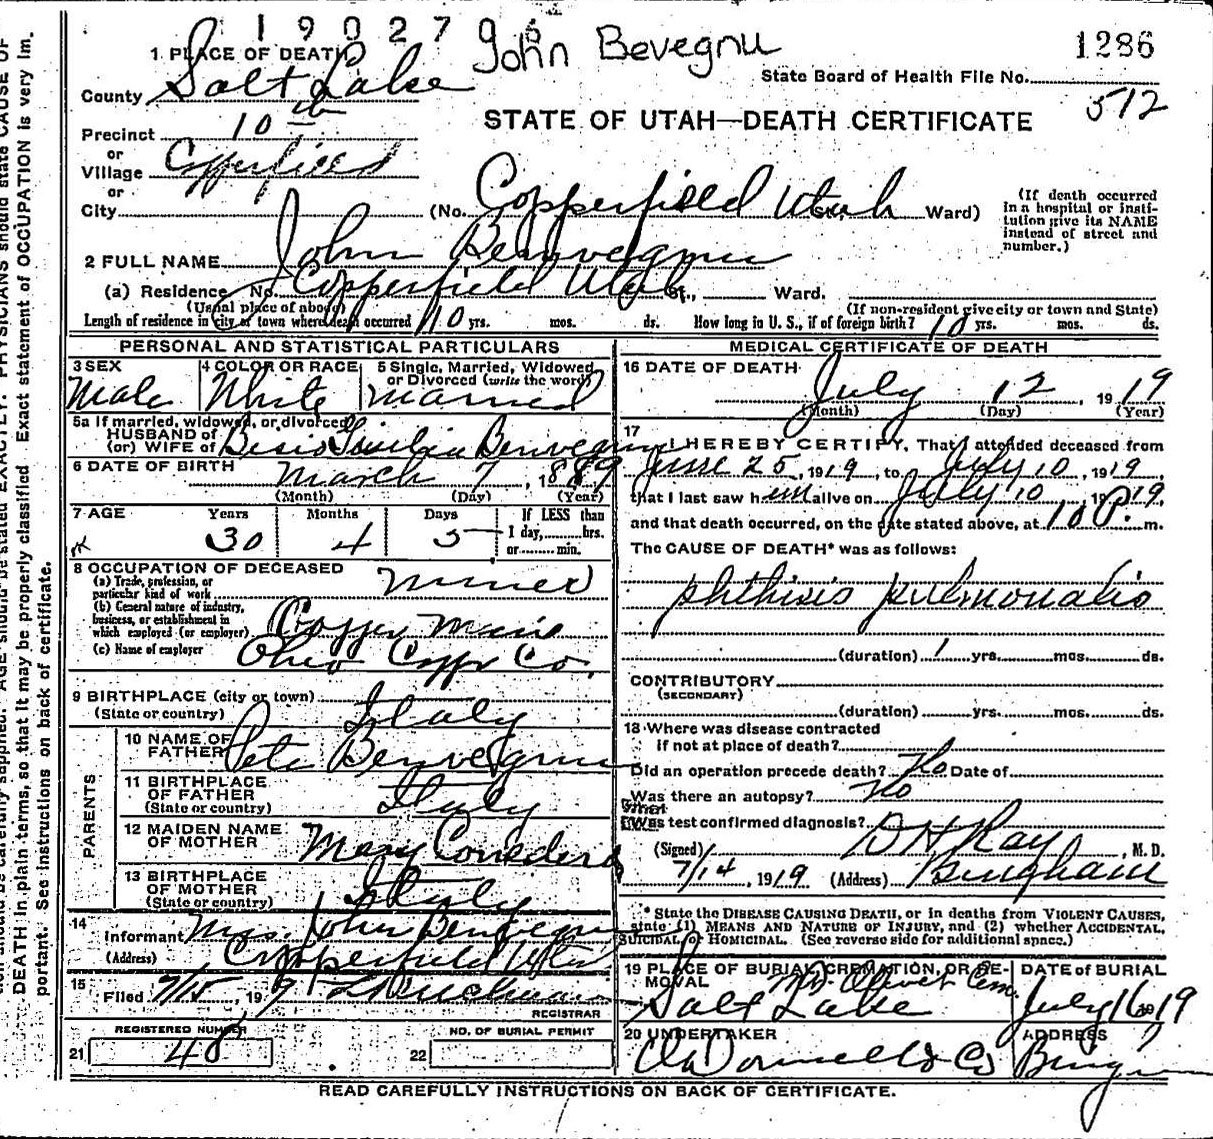 1902796
John Bevegnu
1286
1 PLACE OF DEATH
State Board of Health File No.
County Salt Lake
512
STATE OF UTAH—DEATH CERTIFICATE
Precinct 10th
or
Village Copperfield
or
City (No. Copperfield Utah Ward)
(If death occurred in a hospital or insti-
tution give its NAME
instead of street and
number.)
2 FULL NAME John Benvegnu
(a) Residence No. Copperfield Utah St., Ward.
(Usual place of abode) (If non-resident give city or town and State)
Length of residence in city or town where death occurred 10 yrs. mos. ds. How long in U. S., if of foreign birth? 10 yrs. mos. ds.
PERSONAL AND STATISTICAL PARTICULARS
3 SEX Male
4 COLOR OR RACE White
5 Single, Married, Widowed
or Divorced (write the word)
Married
5a If married, widowed, or divorced
HUSBAND of
(or) WIFE of Benvegnu
6 DATE OF BIRTH March 7, 1889
(Month) (Day) (Year)
7 AGE Years Months Days If LESS than
30 4 5 1 day, hrs.
or min.
8 OCCUPATION OF DECEASED
(a) Trade, profession, or
particular kind of work Miner
(b) General nature of industry,
business, or establishment in
which employed (or employer) Copper Mine
(c) Name of employer Ohio Copper Co.
9 BIRTHPLACE (city or town)
(State or country) Italy
PARENTS
10 NAME OF
FATHER Pete Benvegnu
11 BIRTHPLACE
OF FATHER
(State or country) Italy
12 MAIDEN NAME
OF MOTHER Mary
13 BIRTHPLACE
OF MOTHER
(State or country) Italy
14
Informant Mrs. John Benvegnu
(Address) Copperfield Utah
15
Filed 7/15, 19
REGISTRAR
REGISTERED NUMBER
21 48
NO. OF BURIAL PERMIT
22
MEDICAL CERTIFICATE OF DEATH
16 DATE OF DEATH
July 12, 1919
(Month) (Day) (Year)
17
I HEREBY CERTIFY, That I attended deceased from
June 25, 1919, to July 10, 1919
that I last saw him alive on July 10, 1919
and that death occurred, on the date stated above, at 10 P. m.
The CAUSE OF DEATH* was as follows:
phthisis pulmonalis
(duration) 1 yrs. mos. ds.
CONTRIBUTORY
(SECONDARY)
(duration) yrs. mos. ds.
18 Where was disease contracted
if not at place of death?
Did an operation precede death? No Date of
Was there an autopsy? No
What test confirmed diagnosis?
(Signed) D H Ray, M. D.
7/14, 1919 (Address) Bingham
* State the DISEASE CAUSING DEATH, or in deaths from VIOLENT CAUSES,
state (1) MEANS AND NATURE OF INJURY, and (2) whether ACCIDENTAL,
SUICIDAL, or HOMICIDAL. (See reverse side for additional space.)
19 PLACE OF BURIAL, CREMATION, OR RE-
MOVAL Mt. Olivet Cem.
Salt Lake
DATE of BURIAL
July 16 1919
20 UNDERTAKER
O'Donnell & Co
ADDRESS
READ CAREFULLY INSTRUCTIONS ON BACK OF CERTIFICATE.
DEATH in plain terms, so that it may be properly classified. Exact statement of OCCUPATION is very im-
portant. See instructions on back of certificate.